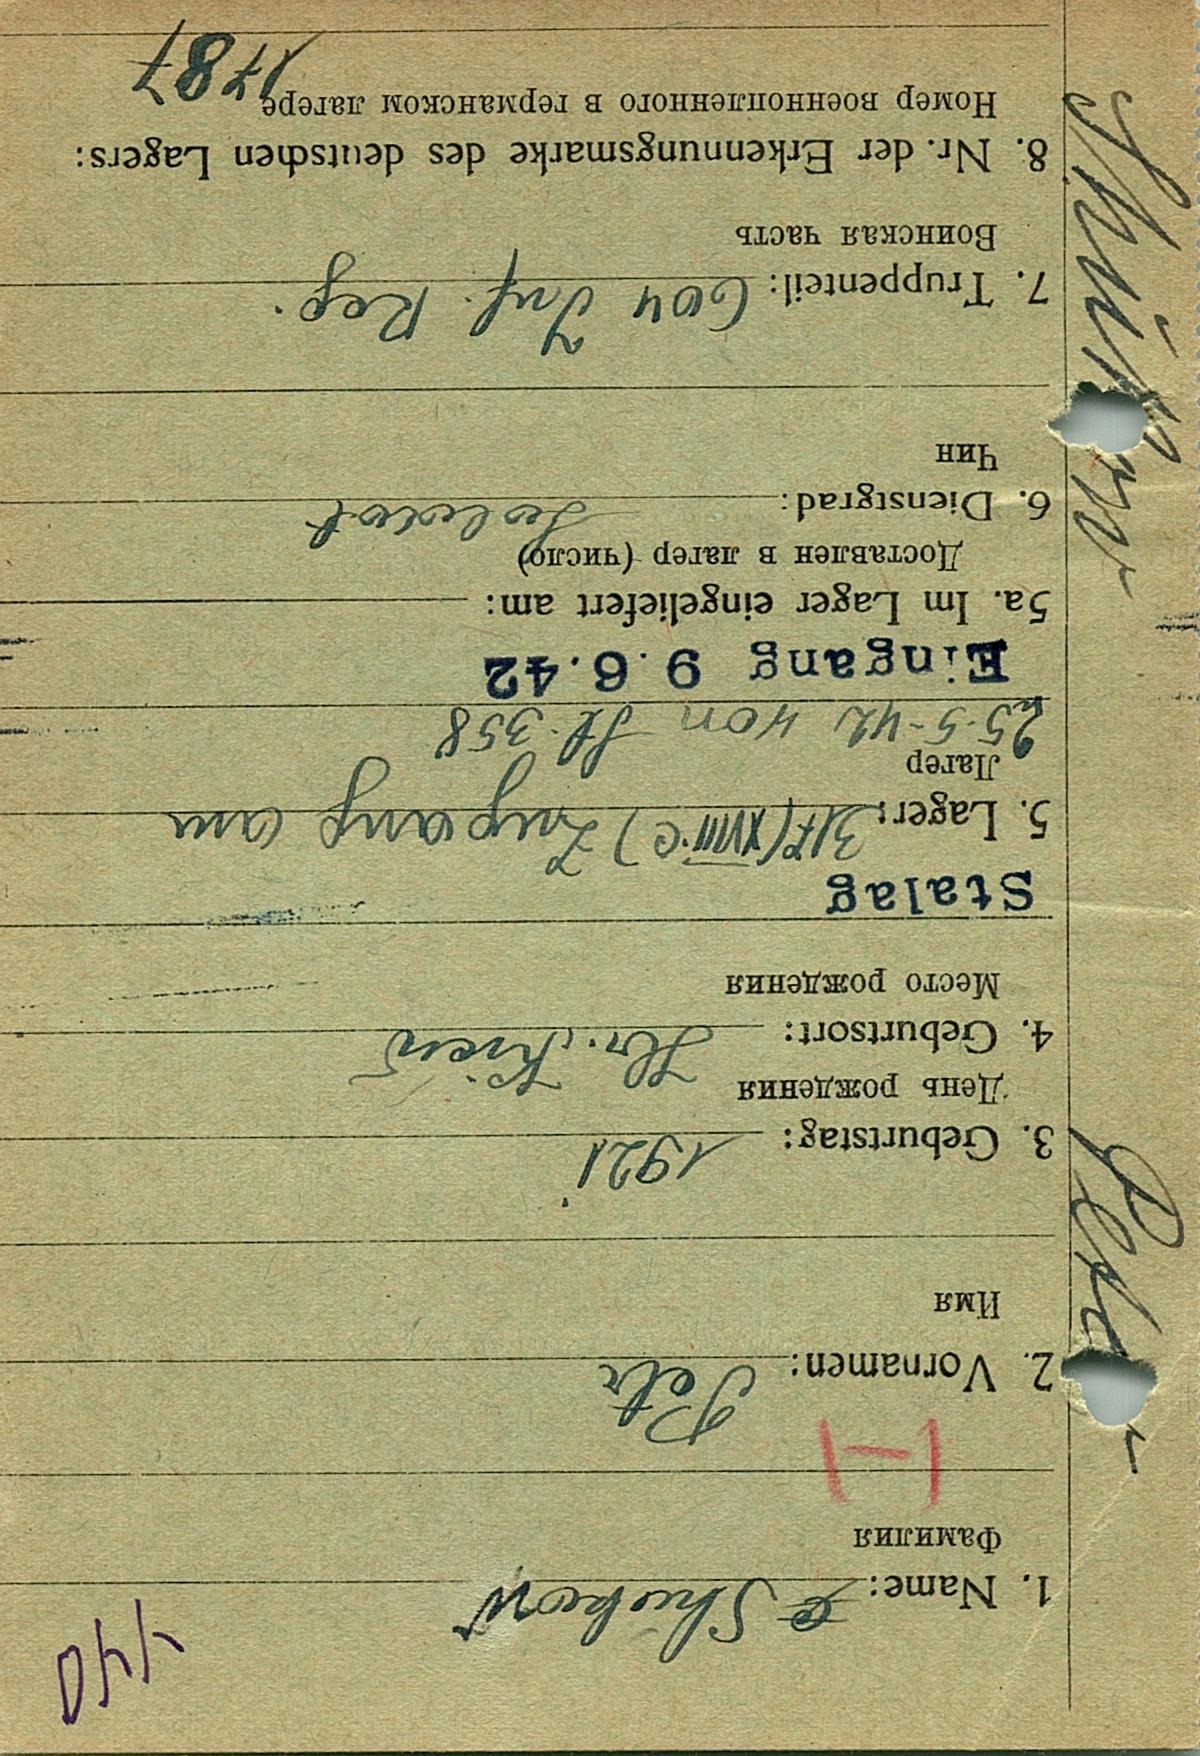 440
1. Name: Shukow
Фамилия
H
2. Vornamen: Petr
Имя
3. Geburtstag: 1921
День рождения
4. Geburtsort: Kiew
Место рождения
Stalag
5. Lager: 317 (XVIII.C) Zugang am
Лагер
25.5.42 von St. 358
Eingang 9.6.42
5a. Im Lager eingeliefert am:
Доставлен в лагер (число)
6. Dienstgrad: Soldat
Чин
7. Truppenteil: 604 Inf. Reg.
Воинская часть
8. Nr. der Erkennungsmarke des deutschen Lagers:
Номер военнопленного в германском лагере 1787